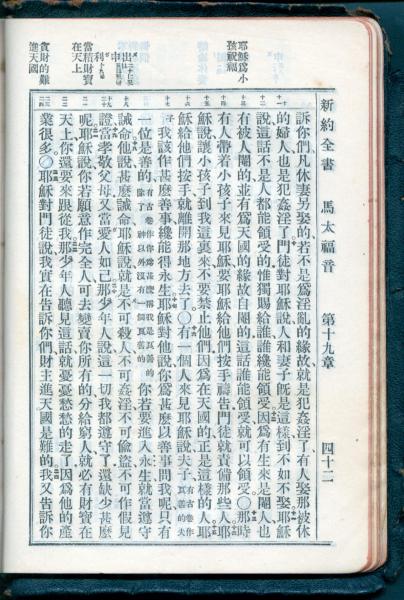 新約全書 馬太福音 第十九章 四十二
耶穌爲小
孩祝福
當積財寶
在天上
貪財的難
進天國
訴你們凡休妻另娶的若不是爲淫亂的緣故就是犯姦淫了有人娶那被休
的婦人也是犯姦淫了門徒對耶穌說人和妻子旣是這樣到不如不娶耶穌
說這話不是人都能領受的惟獨賜給誰誰纔能領受因爲有生來是閹人也
有被人閹的並有爲天國的緣故自閹的這話誰能領受就可以領受○那時
有人帶着小孩子來見耶穌要耶穌給他們按手禱告門徒就責備那些人耶
穌說讓小孩子到我這裏來不要禁止他們因爲在天國的正是這樣的人耶
穌給他們按手就離開那地方去了○有一個人來見耶穌說夫子 有古卷作良善的夫
子我該作甚麽善事纔能得永生耶穌對他說你爲甚麽以善事問我呢只有
一位是善的 有古卷作你爲甚麽稱我是良善的除了 神以外沒有一個良善的 你若要進入永生就當遵守
誡命他說甚麽誡命耶穌說就是不可殺人不可姦淫不可偷盜不可作假見
證當孝敬父母又當愛人如己那少年人說這一切我都遵守了還缺少甚麽
呢耶穌說你若願意作完全人可去變賣你所有的分給窮人就必有財寶在
天上你還要來跟從我那少年人聽見這話就憂憂愁愁的走了因爲他的產
業很多○耶穌對門徒說我實在告訴你們財主進天國是難的我又告訴你